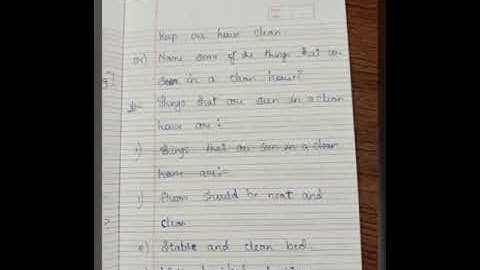 keep our house clean.
iv) Name some of the things that are
seen in a clean house?
Things that are seen in a clean
house are :
i) Things that are seen in a clean
home are :-
i) Room should be neat and
clean
e) Stable and clean bed.